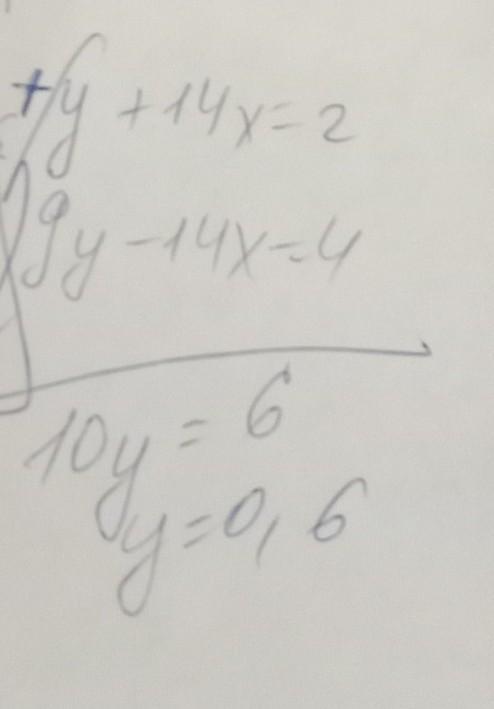 + y + 14x = 2
9y - 14x = 4
10y = 6
y = 0,6